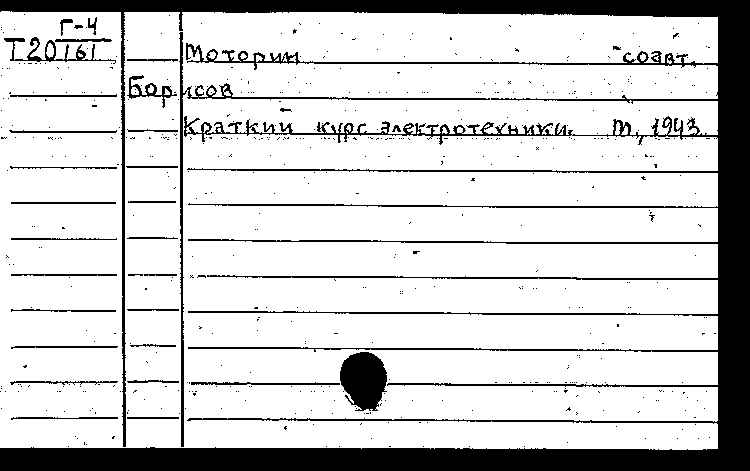 Г-4
Т20161
Моторин соавт.
Борисов
Краткий курс электротехники. М., 1943.